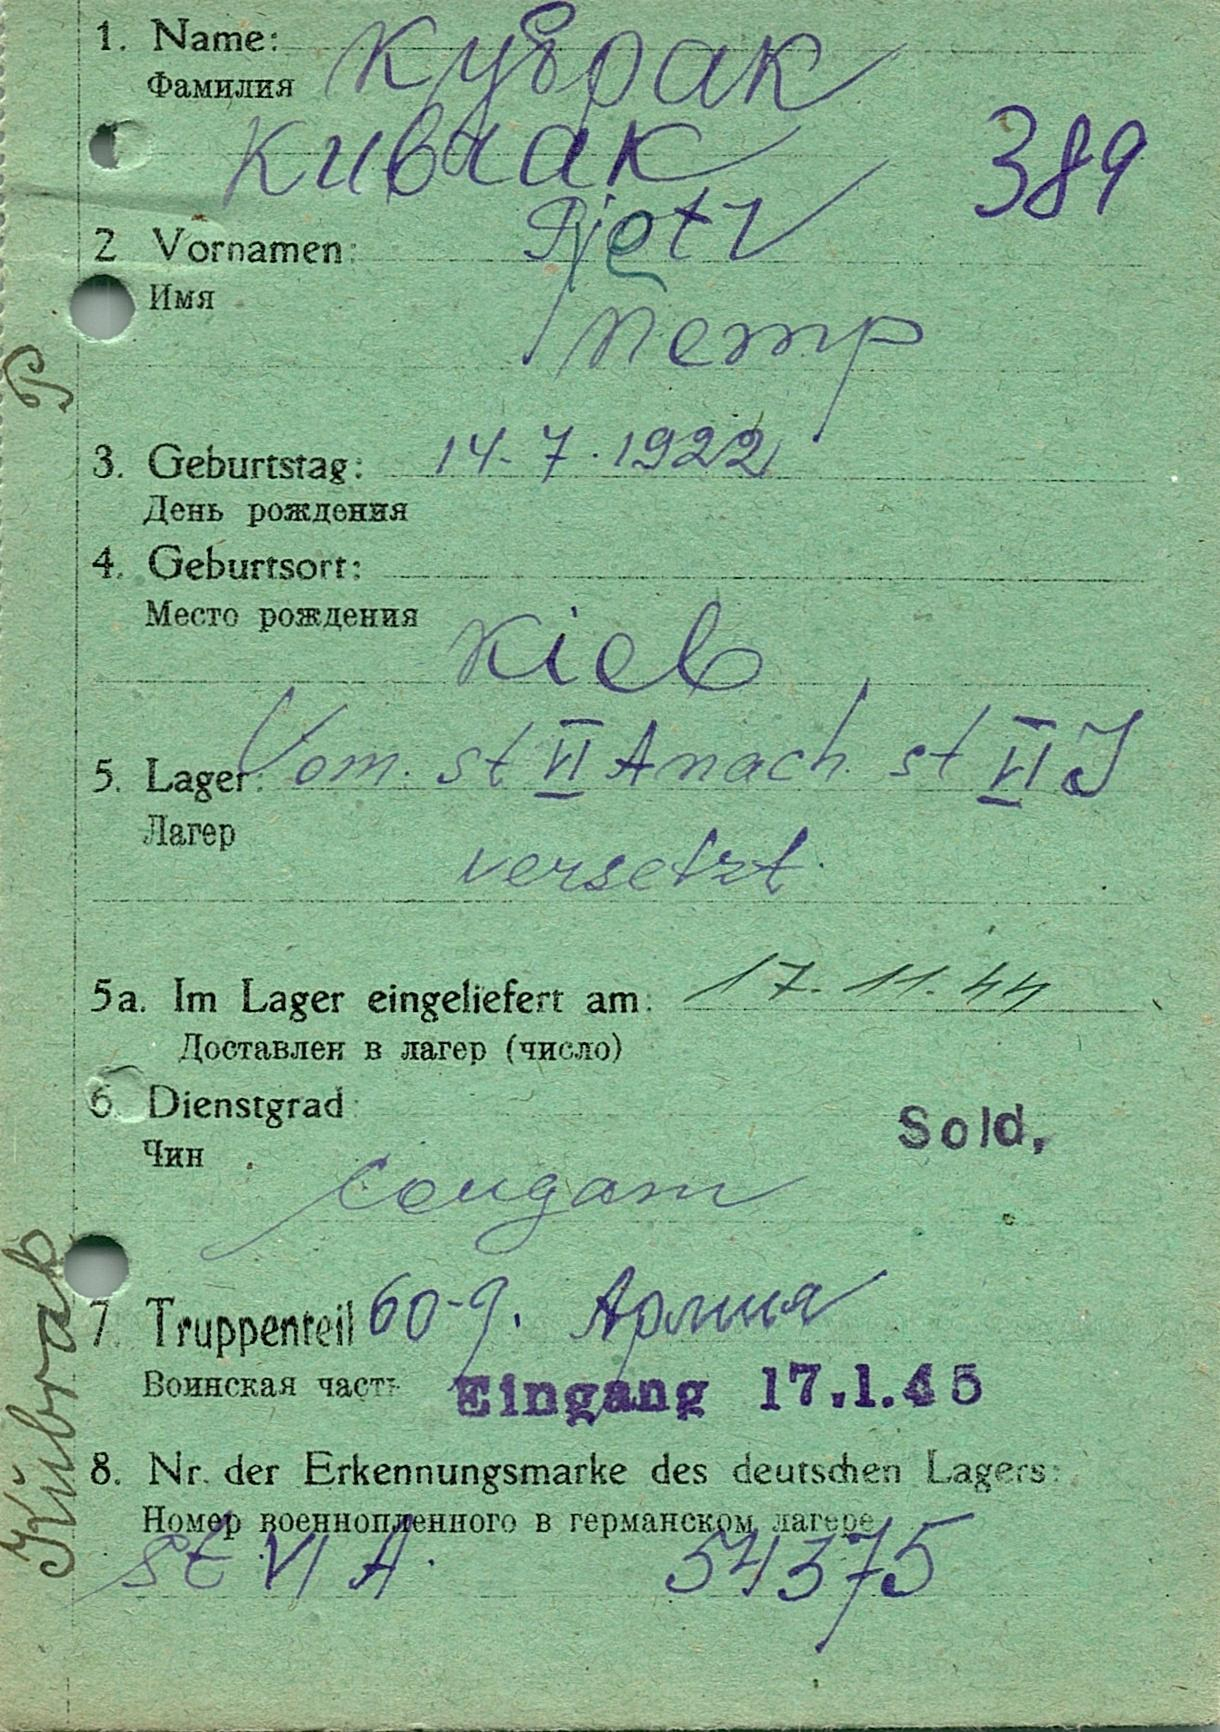 1. Name: Кубрак
Фамилия
389
2 Vornamen: Pjotr
Имя
Петр
3. Geburtstag: 14.7.1922
День рождения
4. Geburtsort:
Место рождения
Kieb
5. Lager: Vom. st VI A nach st VI J
Лагер
versetzt.
5a. Im Lager eingeliefert am: 17.11.44
Доставлен в лагер (число)
6. Dienstgrad
Sold.
Чин
Солдат
7. Truppenteil 60-я. Армия
Воинская часть
Eingang 17.1.45
8. Nr. der Erkennungsmarke des deutschen Lagers:
Номер военнопленного в германском лагере
st VI A. 54375
P
Kübrak